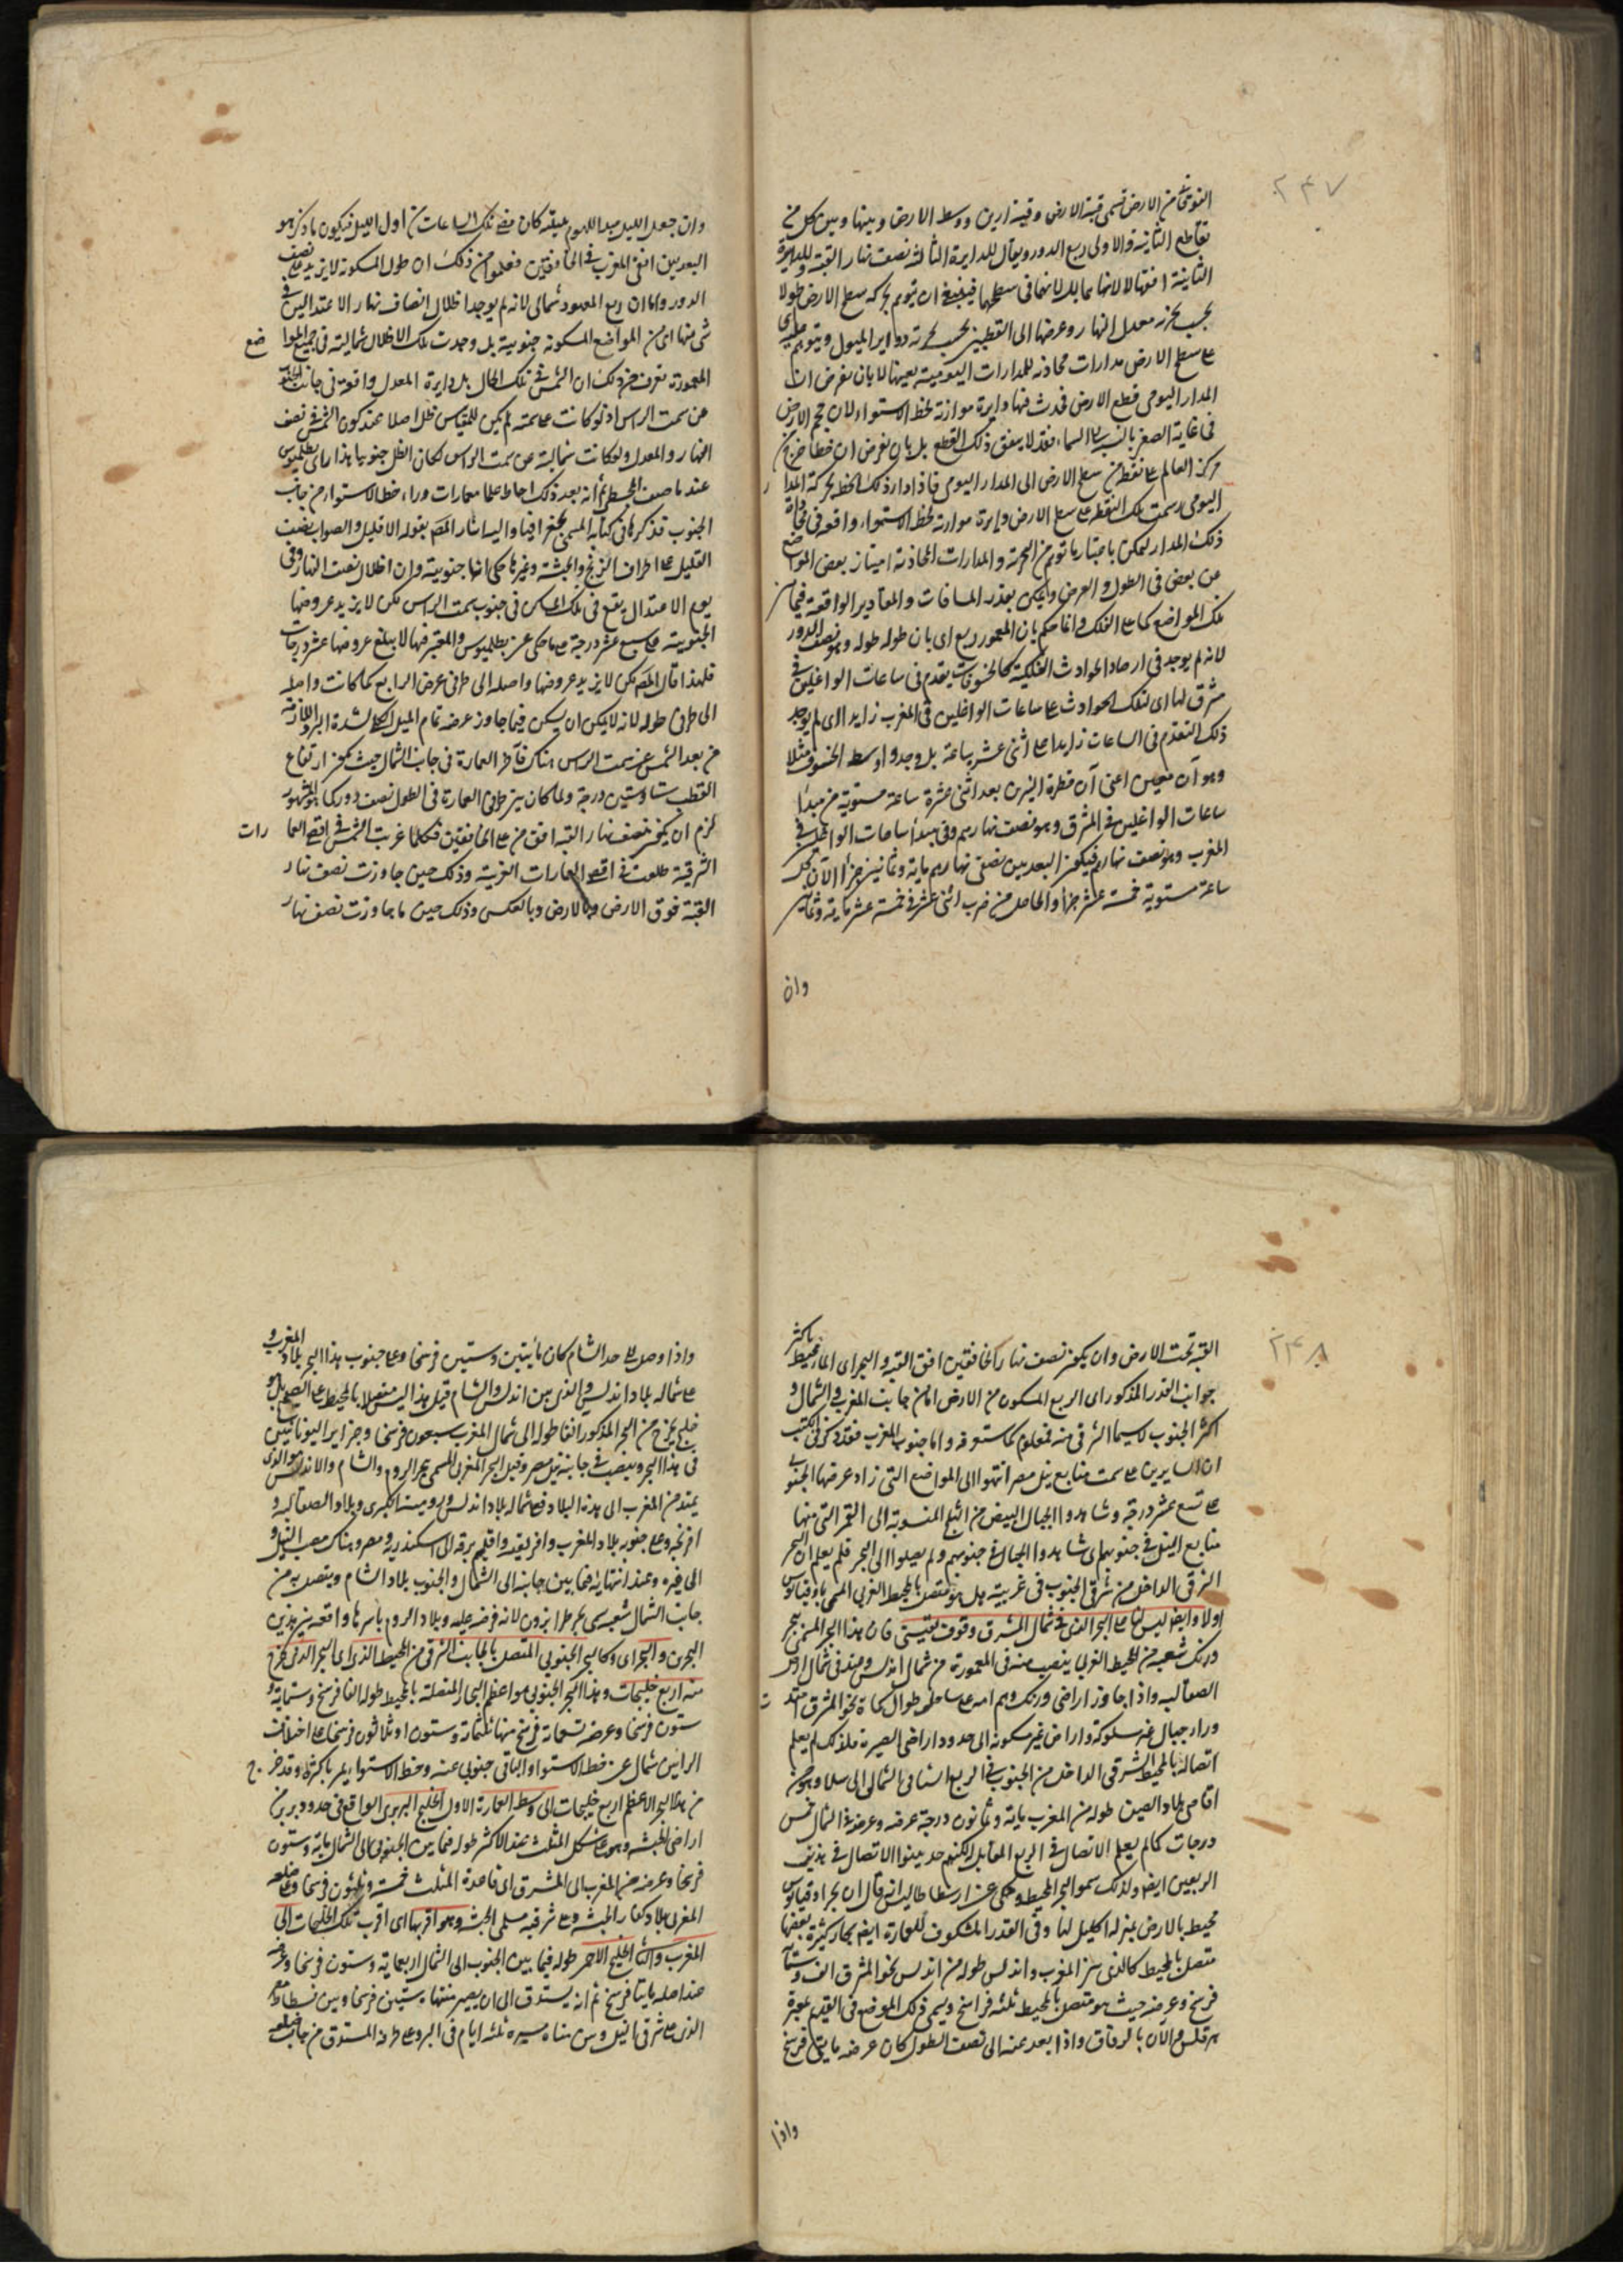 ٢٤٧
الفوقانى من الارض تسمى قبة الارض وقبة ارين ووسط الارض وبينها وبين كل من
تقاطع الثانية والاولى ربع الدور ويقال للدايرة الثالثة نصف نهار القبة وللدايرة
الثانية افقها لا لانها بل لانها فى سطحها فينبغى ان يتوهم بحركه سطح الارض طولا
بحسب تحزئه معدل النهار وعرضها الى القطبين بحسب تحزئه دواير الميول ويتوهم
على سطح الارض مدارات محاذية للمدارات اليومية بعينها لا بان نفرض ان
المدار اليومى قطع الارض فحدث فيها دايرة موازية لخط الاستواء لان حجم الارض
فى غاية الصغر بالنسبة الى السماء فقد لا يتفق ذلك القطع بل بان نفرض ان خطا خرج من
مركز العالم على نقطة من سطح الارض الى المدار اليومى فاذا دار ذلك الخط بحركة المدار
اليومى رسمت تلك النقطة على سطح الارض دايرة موازية لخط الاستواء واقعة فى محاذاة
ذلك المدار ليمكن باعتبار ما توهم من التجزئة والمدارات المحاذية امتياز بعض المواضع
عن بعض فى الطول والعرض ويمكن تقدر المسافات والمقادير الواقعة فيما بين
تلك المواضع كما على الفلك وانما حكم بان المعمور ربع اى بان طوله طوله وهو نصف الدور
لانه لم يوجد فى ارصاد الحوادث الفلكية كالخسوفات تقدم فى ساعات الواغلين فى
مشرق لها اى لتلك الحوادث على ساعات الواغلين فى المغرب زايد اى لم يوجد
ذلك التقدم فى الساعات زايدا على اثنى عشر ساعة بل وجدوا وسط الخسوف مثلا
وهو آن معين اعنى آن قطرة النيرين بعد اثنى عشرة ساعة مستوية من مبدأ
ساعات الواغلين فى المشرق وهو نصف نهارهم وفى مبدأ ساعات الواغلين فى
المغرب وهو نصف نهارهم فيكون البعد بين نصفى نهارهم ماية وثمانين جزأ لان كل
ساعة مستوية خمسة عشر جزأ والحاصل من ضرب اثنى عشر فى خمسة عشر ماية وثمانين
وان
وان جعل الليل مبدا لليوم بليلته كان مضى تلك الساعات من اول الليل فيكون ما ذكر هو
البعد بين افقى المغرب فى الخافقين فعلموا من ذلك ان طول المسكونة لا يزيد على نصف
الدور واما ان ربع المعمور شمالى لانه لم يوجد اظلال انصاف نهار الاعتدالين فى
شئ منها اى من المواضع المسكونة جنوبية بل وجدت تلك الاظلال شمالية فى جميع المواضع
المعمورة فعرف من ذلك ان الشمس فى تلك الحال بل دايرة المعدل واقعة فى جانب الجنوب
عن سمت الراس اذ لو كانت على سمته لم يكن للمقياس ظل اصلا عند كون الشمس فى نصف
النهار والمعدل ولو كانت شمالية عن سمت الراس لكان الظل جنوبيا هذا راى بطلميوس
عند ما صنف المجسطى ثم انه بعد ذلك احاط علما بعمارات وراء خط الاستواء من جانب
الجنوب فذكرها فى كتابه المسمى بجغرافيا واليه اشار المص بقوله الا قليل والصواب بنصف
القليل على اطراف الزنج والحبشة وغيرها حكى انها جنوبية وان اظلال نصف النهار فى
يوم الاعتدال يقع فى تلك المساكن فى جنوب سمت الراس لكن لا يزيد عروضها
الجنوبية على سبع عشر درجة على ما حكى عن بطلميوس والمعتبر فيها لا يبلغ عروضها عشر درجات
فلهذا قال المص لكن لا يزيد عروضها واصله الى طرفى عرض الرابع كما كانت واصله
الى طرفى طوله لانه لا يمكن ان يسكن فيما جاوز عرضه تمام الميل الكلى لشدة البرد اللازمة
من بعد الشمس عن سمت الراس هناك فآخر العمارة فى جانب الشمال حيث يكون ارتفاع
القطب ستا وستين درجة ولما كان بين طرفى العمارة فى الطول نصف دور كما هو المشهور
لزم ان يكون نصف نهار القبه افق من على الخافقين فكلما غربت الشمس فى اقصى العمارات
الشرقية طلعت فى اقصى العمارات الغربية وذلك حين جاوزت نصف نهار
القبة فوق الارض وبالعكس وذلك حين ما جاوزت نصف نهار
٢٤٨
القبة تحت الارض وان يكون نصف نهار الخافقين افق القبه والبحر اى الماء محيط باكثر
جوانب القدر المذكور اى الربع المسكون من الارض اما من جانب المغرب والشمال و
اكثر الجنوب لاسيما الشرقى منه فمعلوم كما ستعرفه واما جنوب المغرب فقد ذكر فى الكتب
ان السايرين على سمت منابع نيل مصر انتهوا الى المواضع التى زاد عرضها الجنوبى
على تسع عشر درجة وشاهدوا الجبال البيض من الثلج المنسوبة الى القمر التى منها
منابع النيل فى جنوبهم اى شاهدوا الجبال فى جنوبهم ولم يصلوا الى البحر فلم يعلم ان البحر
الشرقى الداخل من شرقى الجنوب فى غربيته هل هو متصل بالمحيط الغربى المسمى باوقيانوس
اولا وايضا ليس لنا على البحر الذى فى شمال المشرق وقوف يقينى فان هذا البحر المسمى ببحر
ورنك شعبة من المحيط الغربى ينصب منه فى المعمورة من شمال اندلس ويمتد فى شمال ارض
الصقالبه واذا جاوز اراضى ورنك وهم امه على ساحله طوال كماة نحو المشرق امتد
وراء جبال غير مسلوكة واراضى غير مسكونة الى حدود اراضى الصين فلذلك لم يعلم
اتصاله بالمحيط الشرقى الداخل من الجنوب فى الربع الشمالى الى سلا وهو من
اقاصى بلاد الصين طوله من المغرب ماية وثمانون درجة عرضه وعرضه فى الشمال خمس
درجات كما لم يعلم الاتصال فى الربع المقابل لكنهم حد بينوا الاتصال فى هذين
الربعين ايضا ولذلك سموا البحر المحيط وحكى عن ارسطاطاليس انه قال ان بحر اوقيانوس
محيط بالارض بمنزلة اكليل لها وفى القدر المشكوف للعمارة ايضا بحار كثيرة بعضها
متصل بالمحيط كالذى بين المغرب واندلس طوله من اندلس نحو المشرق الف وستماية
فرسخ وعرضه حيث هو متصل بالمحيط ثلثه فراسخ ويسمى ذلك الموضع فى القديم بمعبرة
هرقلس والآن بالزقاق واذا بعد عنه الى نصف الطول كان عرضه مايتى فرسخ
واذا
واذا وصل الى حد الشام كان مائتين وستين فرسخا وعلى جنوب هذا البحر بلاد المغرب و
على شماله بلاد اندلس والذى بين اندلس والشام قيل هذا ليس متصلا بالمحيط على الصحيح بل هو
خليج يخرج من البحر المذكور الفا طوله الى شمال المغرب سبعون فرسخا وجزاير اليونانيين
فى هذا البحر وينصب فى جانبه نيل مصر وقيل البحر المغربى المسمى ببحر الروم والشام والاندلس هو الذى
يمتد من المغرب الى هذه البلاد فعلى شماله بلاد اندلس ورومية الكبرى وبلاد الصقالبه و
افرنجه وعلى جنوبه بلاد المغرب وافريقيه واقليم برقه الى اسكندريه ومصر وهناك مصب النيل و
الى غيره وعند انتهايه فيما بين جانبه الى الشمال والجنوب بلاد الشام ويتصل به من
جانب الشمال شعبه يسمى بحر طرابزون لانه فرضة عليه وبلاد الروم باسرها واقعه بين هذين
البحرين والبحر اى وكالبحر الجنوبى المتصل بالجانب الشرقى من المحيط الذى اى البحر الذى يخرج
منه اربع خليجات وهذا البحر الجنوبى هو اعظم البحار المتصلة بالمحيط طوله الفا فرسخ وستماية و
ستون فرسخا وعرضه تسعماية فرسخ منها ثلثماية وستون او ثلاثون فرسخا على اختلاف
الرأيين شمالى عن خط الاستواء والباقى جنوبى عنه وخط الاستواء يمر باكثره وقد خرج
من هذا البحر الاعظم اربع خليجات الى وسط العمارة الاول الخليج البربرى الواقع فى حدود بربر من
اراضى الحبشه وهو على شكل المثلث عند الاكثر طوله فيما بين الجنوب الى الشمال ماية وستون
فرسخا وعرضه من المغرب الى المشرق اى قاعدة المثلث خمسة وثلثون فرسخا وعلى ضلعه
المغربى بلاد كفار الحبشه وعلى شرقيه مسلمى الحبشه وهو اقربها اى اقرب تلك الخليجات الى
المغرب والثانى الخليج الاحمر طوله فيما بين الجنوب الى الشمال اربعماية وستون فرسخا وعرضه
عند اصله مايتا فرسخ ثم انه يستدق الى ان يصير منتهاه ستين فرسخا وبين فسطاط
الذى على شرقى النيل وبين منتهاه مسيرة ثلثه ايام فى البر وعلى طرفه المستدق من جانب ضلعه